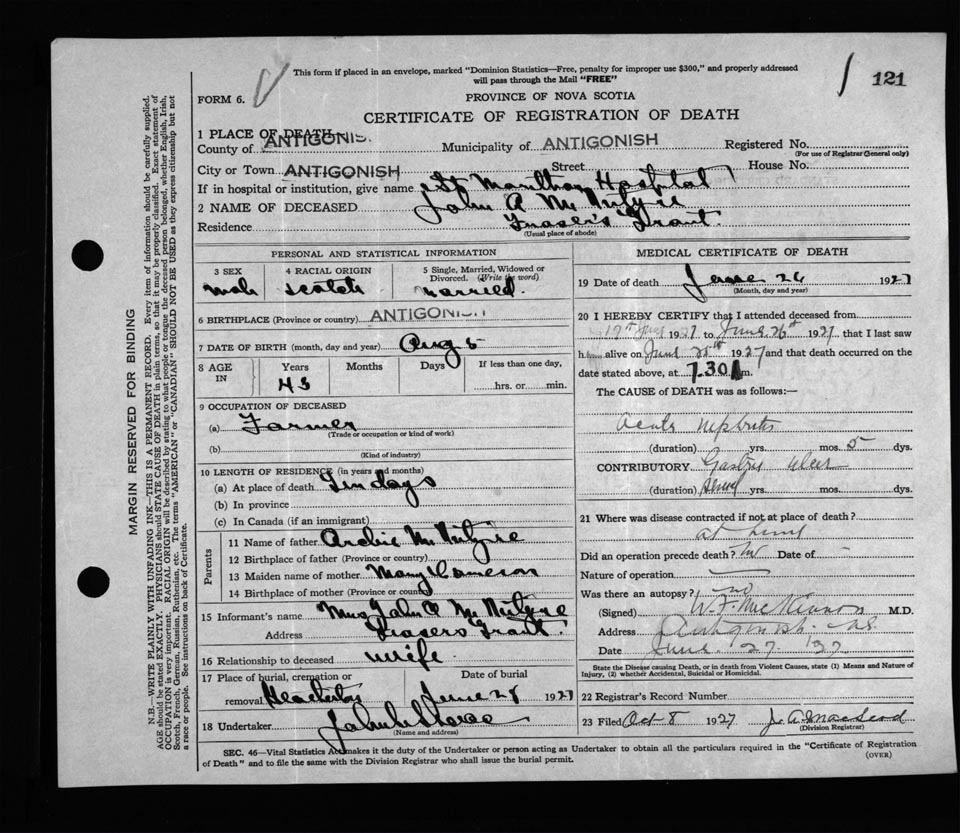 This form if placed in an envelope, marked "Dominion Statistics—Free, penalty for improper use $300," and properly addressed
will pass through the Mail "FREE"
121
FORM 6.
PROVINCE OF NOVA SCOTIA
CERTIFICATE OF REGISTRATION OF DEATH
1 PLACE OF DEATH
County of ANTIGONISH Municipality of ANTIGONISH Registered No.
(For use of Registrar General only)
City or Town ANTIGONISH Street House No.
If in hospital or institution, give name St Marthas Hospital
2 NAME OF DECEASED John A McIntyre
Residence Fraser's Grant
(Usual place of abode)
PERSONAL AND STATISTICAL INFORMATION
3 SEX 4 RACIAL ORIGIN 5 Single, Married, Widowed or
Divorced. (Write the word)
male scotch married
6 BIRTHPLACE (Province or country) ANTIGONISH
7 DATE OF BIRTH (month, day and year) Aug 5
8 AGE IN Years Months Days If less than one day,
hrs. or min.
9 OCCUPATION OF DECEASED
(a) Farmer
(Trade or occupation or kind of work)
(b)
(Kind of industry)
10 LENGTH OF RESIDENCE (in years and months)
(a) At place of death days
(b) In province
(c) In Canada (if an immigrant)
Parents
11 Name of father Archie McIntyre
12 Birthplace of father (Province or country)
13 Maiden name of mother Mary Cameron
14 Birthplace of mother (Province or country)
15 Informant's name Mrs John A McIntyre
Address Frasers Grant
16 Relationship to deceased wife
17 Place of burial, cremation or Date of burial
removal Heatherton June 28 1927
18 Undertaker John
(Name and address)
MEDICAL CERTIFICATE OF DEATH
19 Date of death June 26 1927
(Month, day and year)
20 I HEREBY CERTIFY that I attended deceased from
1927 to June 26th 1927 that I last saw
h alive on June 1927 and that death occurred on the
date stated above, at 7.30 m.
The CAUSE of DEATH was as follows:
Acute nephritis
(duration) yrs. mos. 5 dys.
CONTRIBUTORY Gastric ulcer
(duration) yrs. mos. dys.
21 Where was disease contracted if not at place of death?
at home
Did an operation precede death? no Date of
Nature of operation
Was there an autopsy? no
(Signed) W.F. McKinnon M.D.
Address Antigonish. N.S.
Date June 27. 27
State the Disease causing Death, or in death from Violent Causes, state (1) Means and Nature of
Injury, (2) whether Accidental, Suicidal or Homicidal.
22 Registrar's Record Number
23 Filed Oct 8 1927 J. A. MacLeod
(Division Registrar)
SEC. 46—Vital Statistics Act makes it the duty of the Undertaker or person acting as Undertaker to obtain all the particulars required in the "Certificate of Registration
of Death" and to file the same with the Division Registrar who shall issue the burial permit.
(OVER)
MARGIN RESERVED FOR BINDING
N.B.—WRITE PLAINLY WITH UNFADING INK—THIS IS A PERMANENT RECORD. Every item of information should be carefully supplied.
AGE should be stated EXACTLY. PHYSICIANS should STATE CAUSE OF DEATH in plain terms, so that it may be properly classified. Exact statement of
OCCUPATION is very important. RACIAL ORIGIN will be described by stating to what people or tongue the deceased person belonged, whether English, Irish,
Scotch, French, German, Russian, Ruthenian, etc. The terms "AMERICAN" or "CANADIAN" SHOULD NOT BE USED as they express citizenship but not
a race or people. See instructions on back of Certificate.